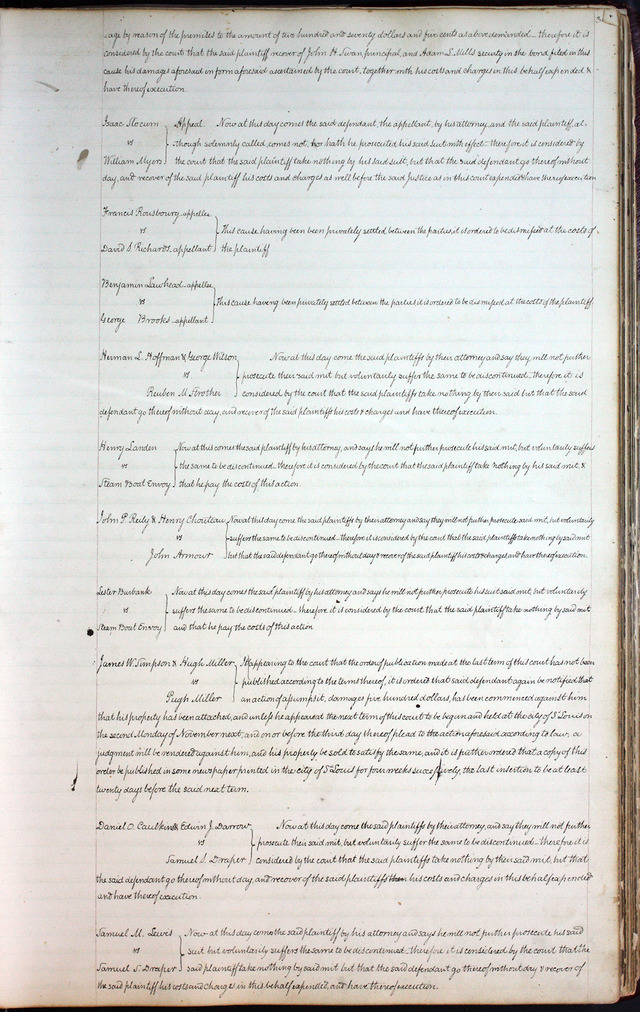 age by reason of the premises to the amount of two hundred and seventy dollars and five cents as above demanded_ therefore it is
considered by the court that the said plaintiff recover of John H. Swan, principal, and Adam S. Mills, security in the bond filed in this
cause his damages aforesaid in form aforesaid ascertained by the court, together with his costs and charges in this behalf expended &
have thereof execution.
Isaac Slocum } Appeal. Now at this day comes the said defendant, the appellant, by his attorney, and the said plaintiff, al-
vs though solemnly called, comes not, nor hath he prosecuted his said suit with effect_ therefore it is considered by
William Myers the court that the said plaintiff take nothing by his said suit, but that the said defendant go thereof without
day, and recover of the said plaintiff his costs and charges as well before the said Justice as in this court expended & have thereof execution
Francis Rousbourg_appellee
vs } This cause having been been privately settled between the parties, it is ordered to be dismissed at the costs of
David S. Richards_appellant the plaintiff
Benjamin Lawhead_appellee
vs } This cause having been privately settled between the parties it is ordered to be dismissed at the costs of the plaintiff
George Brooks_appellant
Herman L. Hoffman & George Wilson Now at this day come the said plaintiffs by their attorney and say they will not further
vs } prosecute their said suit but voluntarily suffer the same to be discontinued_ therefore it is
Reuben M. Strother considered by the court that the said plaintiffs take nothing by their said but that the said
defendant go thereof without day, and recover of the said plaintiffs his costs & charges and have thereof execution.
Henry Landen Now at this comes the said plaintiff by his attorney, and says he will not further prosecute his said suit, but voluntarily suffers
vs } the same to be discontinued_ therefore it is considered by the court that the said plaintiff take nothing by his said suit, &
Steam Boat Envoy that he pay the costs of this action.
John P. Reily & Henry Chouteau Now at this day come the said plaintiffs by their attorney and say they will not further prosecute said suit, but voluntarily
vs } suffers the same to be discontinued_ therefore it is considered by the court that the said plaintiffs take nothing by said suit
John Armour but that the said defendant go thereof without day & recover of the said plaintiff his costs & charges, and have thereof execution.
Lester Burbank Now at this day comes the said plaintiff by his attorney and says he will not further prosecute his suit said suit, but voluntarily
vs } suffers the same to be discontinued_ therefore it is considered by the court that the said plaintiff take nothing by said suit
Steam Boat Envoy and that he pay the costs of this action
James W. Simpson & Hugh Miller It appearing to the court that the order of publication made at the last term of this court has not been
vs } published according to the terms thereof, it is ordered that said defendant again be notified that
Pugh Miller an action of assumpsit, damages five hundred dollars, has been commenced against him
that his property has been attached, and unless he appears at the next term of this court to be begun and held at the city of St Louis on
the second Monday of November next, and on or before the third day thereof plead to the action aforesaid according to law, a
judgment will be rendered against him, and his property be sold to satisfy the same, and it is further ordered that a copy of this
order be published in some newspaper printed in the city of St Louis for four weeks successively, the last insertion to be at least
twenty days before the said next term.
Daniel O. Caulkins & Edwin J. Darrow Now at this day come the said plaintiffs by their attorney, and say they will not further
vs } prosecute their said suit, but voluntarily suffer the same to be discontinued_ therefore it is
Samuel S. Draper considered by the court that the said plaintiffs take nothing by their said suit, but that
the said defendant go thereof without day, and recover of the said plaintiffs his costs and charges in this behalf expended
and have thereof execution.
Samuel M. Lewis Now at this day come the said plaintiff by his attorney and says he will not further prosecute his said
vs } suit but voluntarily suffers the same to be discontinued_ therefore it is considered by the court that the
Samuel S. Draper said plaintiff take nothing by said suit but that the said defendant go thereof without day & recover of
the said plaintiff his costs and charge in this behalf expended, and have thereof execution.